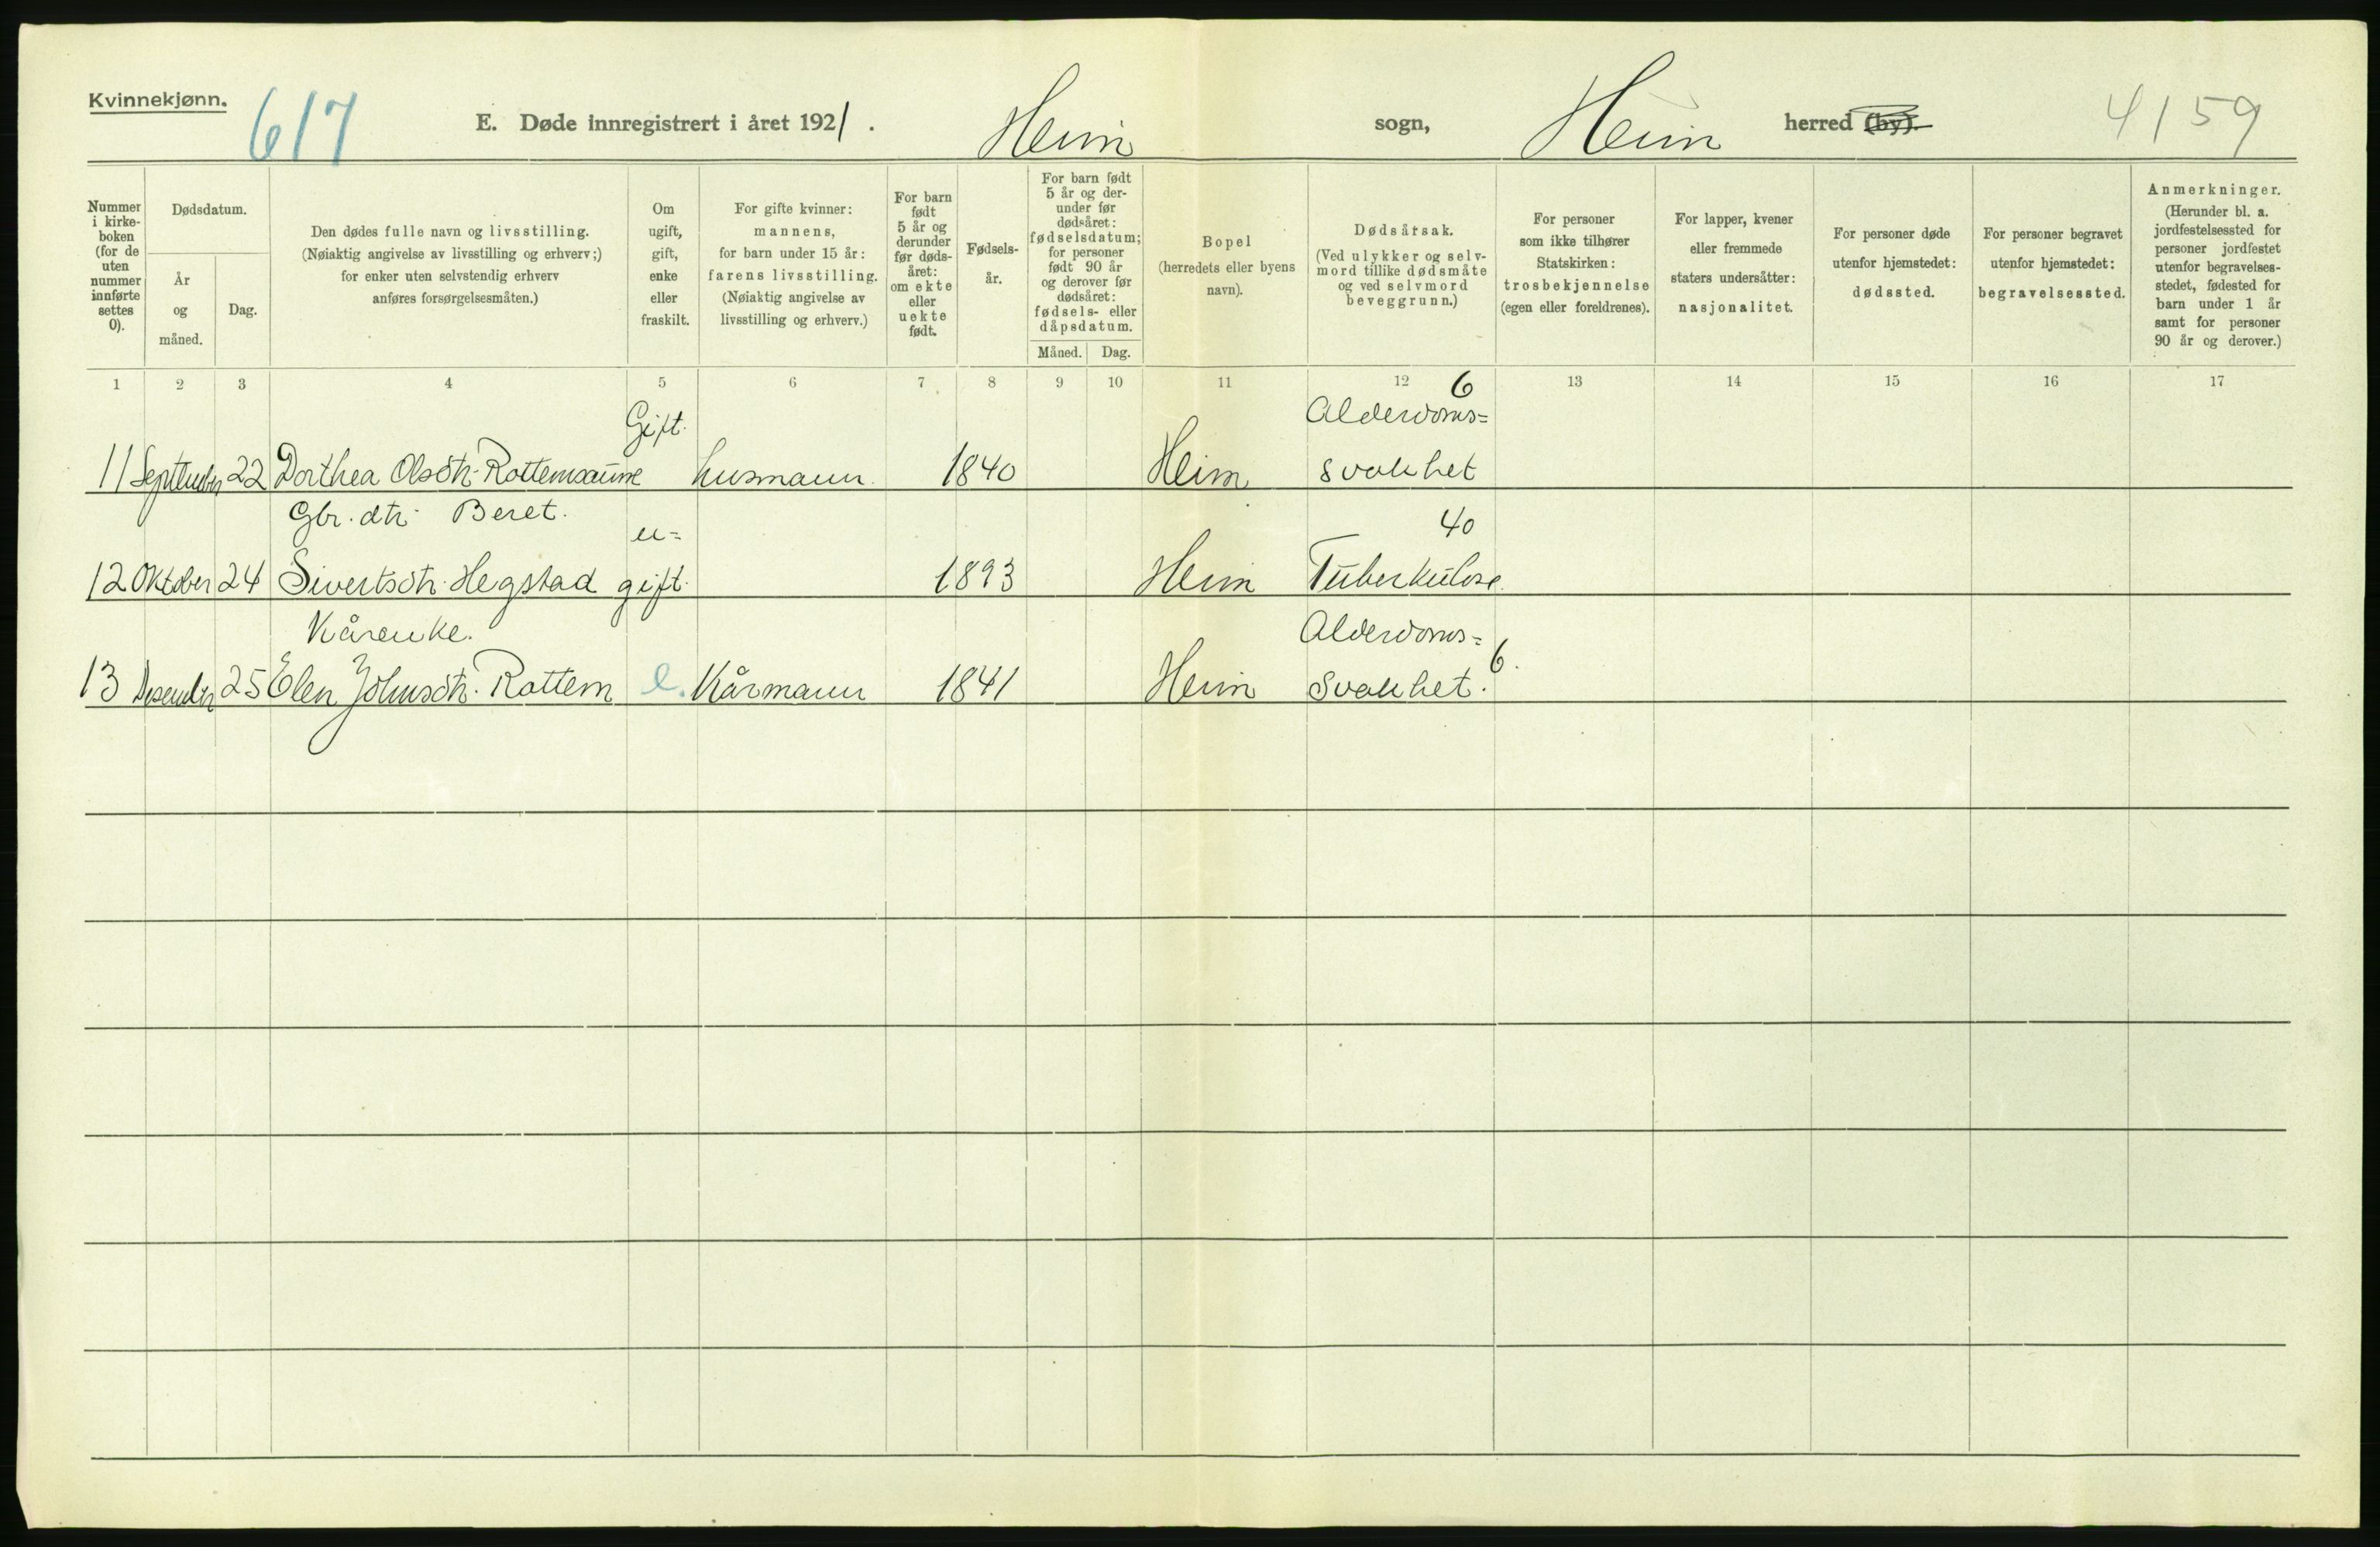 Kvinnekjønn.
617
E. Døde innregistrert i året 1921.
Heim
sogn,
Heim
herred (by).
4159
Nummer i kirke-boken (for de uten nummer innførte settes 0).
Dødsdatum.
År og måned.
Dag.
Den dødes fulle navn og livsstilling.
(Nøiaktig angivelse av livsstilling og erhverv;)
for enker uten selvstendig erhverv
anføres forsørgelsesmåten.)
Om ugift, gift, enke eller fraskilt.
For gifte kvinner:
mannens,
for barn under 15 år:
farens livsstilling.
(Nøiaktig angivelse av
livsstilling og erhverv.)
For barn født 5 år og derunder før døds-året: om ekte eller uekte født.
Fødsels-år.
For barn født 5 år og der-under før dødsåret: fødselsdatum; for personer født 90 år og derover før dødsåret: fødsels- eller dåpsdatum.
Måned.
Dag.
Bopel
(herredets eller byens
navn).
Dødsårsak.
(Ved ulykker og selv-
mord tillike dødsmåte
og ved selvmord
beveggrunn.)
For personer
som ikke tilhører
Statskirken:
trosbekjennelse
(egen eller foreldrenes).
For lapper, kvener
eller fremmede
staters undersåtter:
nasjonalitet.
For personer døde
utenfor hjemstedet:
dødssted.
For personer begravet
utenfor hjemstedet:
begravelsessted.
Anmerkninger.
(Herunder bl. a.
jordfestelsessted for
personer jordfestet
utenfor begravelses-
stedet, fødested for
barn under 1 år
samt for personer
90 år og derover.)
1 2 3 4 5 6 7 8 9 10 11 12 13 14 15 16 17
6
Gift. Alderdoms=
11 September 22 Dorthea Olsdtr. Rottemsaune husmann. 1840 Heim svakhet
Gbr. dtr. Beret. u= 40
12 Oktober 24 Sivertsdtr. Hegstad gift. 1893 Heim Tuberkulose.
Kårenke. Alderdoms=
13 Desember 25 Elen Johnsdtr. Rottem e. Kårmann 1841 Heim Svakhet. 6.